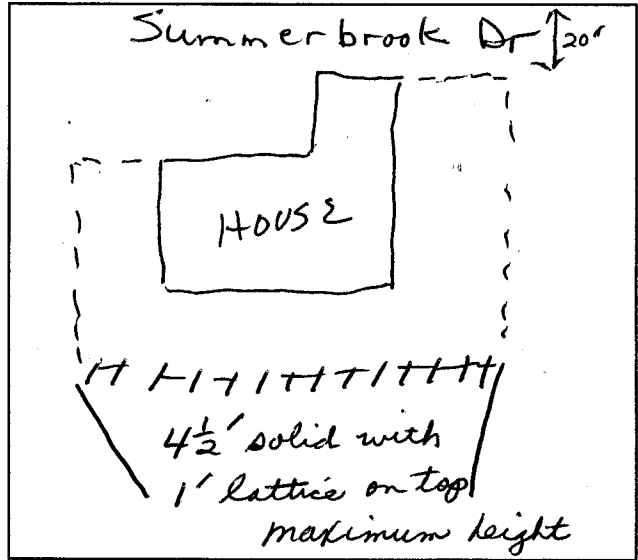 Summerbrook Dr 20'
HOUSE
4½' solid with
1' lattice on top
maximum height